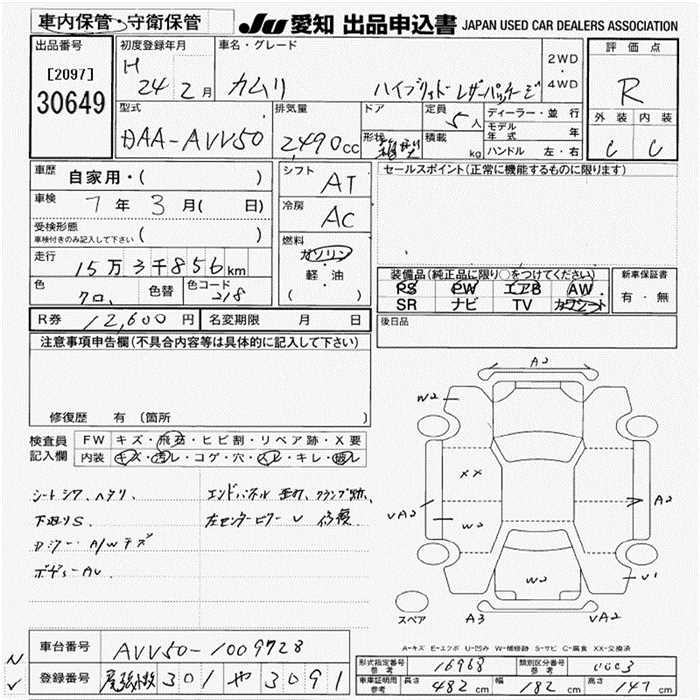 車内保管・守衛保管
JU 愛知 出品申込書 JAPAN USED CAR DEALERS ASSOCIATION
出品番号
[2097]
30649
初度登録年月
H 24 年 2 月
車名・グレード
カムリ ハイブリッド レザーパッケージ
2WD
・
4WD
評価点
R
外装 内装
C C
型式
DAA-AVV50
排気量
2,490 cc
ドア
形状
定員
5 人
積載
kg
ディーラー・並行
モデル年式 年
ハンドル 左・右
車歴 自家用・( )
車検 7 年 3 月( 日)
受検形態
車検付きのみ記入して下さい ( )
走行 15万3千856km
色 クロ 色替 色コード 218
シフト AT
冷房 AC
燃料
ガソリン
・
軽・油
( )
セールスポイント(正常に機能するものに限ります)
装備品(純正品に限り○をつけてください)
PS PW エアB AW
SR ナビ TV カワシート
新車保証書
有・無
後日品
R券 12,600 円 名変期限 月 日
注意事項申告欄(不具合内容等は具体的に記入して下さい)
修復歴 有 (箇所 )
検査員
記入欄
FW キズ・飛石・ヒビ割・リペア跡・X要
内装 キズ・汚レ・コゲ・穴・スレ・キレ・破レ
シートシワ、ヘタリ
エンドパネル 歪み、クランプ跡、
下廻りS
左センターピラー U 修復
A/Wキズ
ボディーAU
A2
W2
XX
VA2
W2
A2
W2
V1
A3
VA2
スペア
A-キズ E-エクボ U-凹み W-補修跡 S-サビ C-腐食 XX-交換済
車台番号 AVV50-1009728
登録番号 尾張小牧 301 や 3091
形式指定番号
参考
16968
類別区分番号
参考
0003
車庫証明用
参考
長さ 482 cm 幅 182 cm 高さ 147 cm